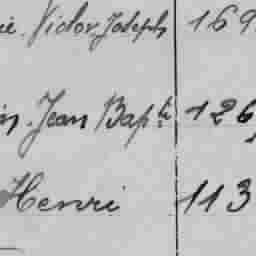 Victor Joseph 169
Jean Bapte 126
Henri 113